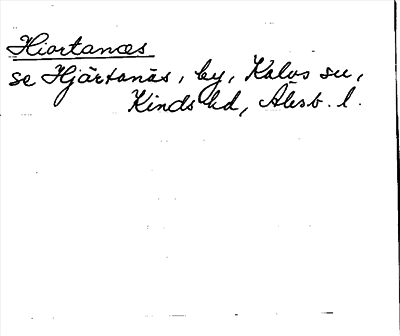 Hiortanæs
se Hjärtanäs, by, Kalvs sn,
Kinds hd, Älvsb. l.